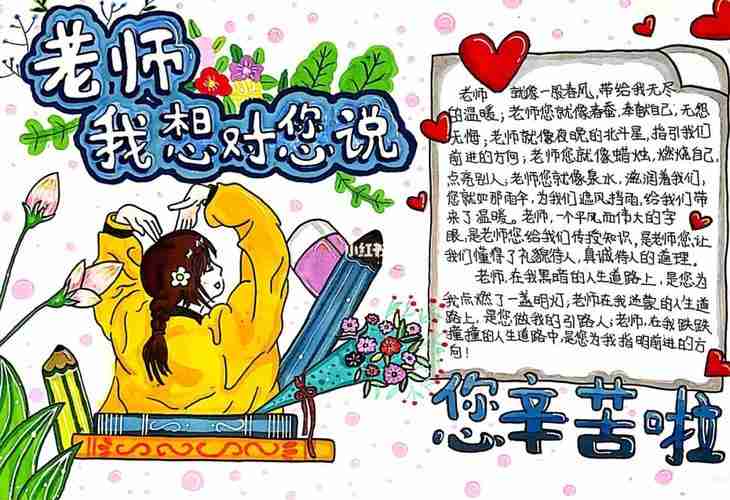 老师
我想对您说
小红书
老师 就像一股春风,带给我无尽
的温暖;老师您就像春蚕,奉献自己,无怨
无悔;老师就像夜晚的北斗星,指引我们
前进的方向;老师您就像蜡烛,燃烧自己,
点亮别人;老师您就像泉水,滋润着我们,
您就如那雨伞,为我们遮风挡雨,给我们带
来了温暖。老师,一个平凡而伟大的字
眼,是老师您给我们传授知识,是老师您让
我们懂得了礼貌待人,真诚待人的道理。
老师,在我黑暗的人生道路上,是您为
我点燃了一盏明灯;老师在我迷蒙的人生道
路上,是您做我的引路人;老师,在我跌跌
撞撞的人生道路中,是您为我指明前进的方
向!
您辛苦啦